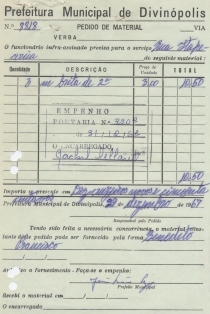 Prefeitura Municipal de Divinópolis
N.º PEDIDO DE MATERIAL VIA
VERBA
O funcionário infra-assinado precisa para o serviço Rua Itape-
do seguinte material:
Quantidade DESCRIÇÃO Preço da Unidade TOTAL
3 m brita de 2ª 3,50 10,50
EMPENHO
PORTARIA N.º
de
O ENCARREGADO
10,50
Importa o presente em Dez cruzeiros novos e cinquenta
centavos
Prefeitura Municipal de Divinópolis, 29 dezembro de 1967
Responsável pelo Pedido
Tendo sido feita a necessária concorrência, o material
deste pedido pode ser fornecido pela firma Benedito
Francisco
Autorizo o fornecimento - Faça-se o empenho:
Prefeito Municipal
Recebi o material em
O encarregado